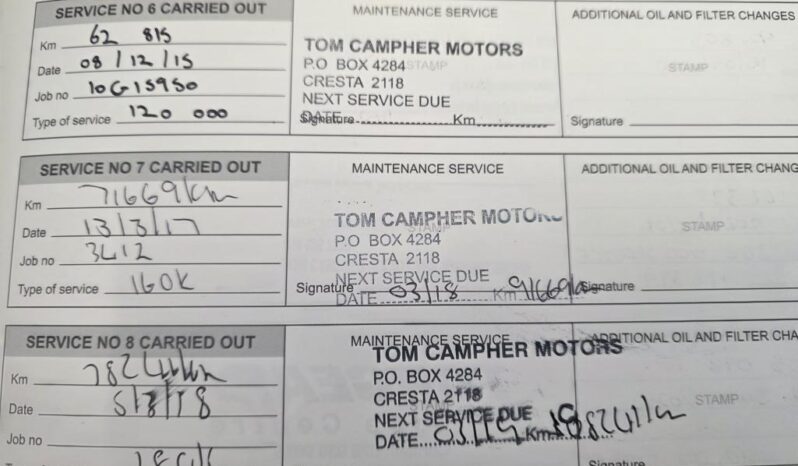 SERVICE NO 6 CARRIED OUT
Km 62 815
Date 08/12/15
Job no 10G15950
Type of service 120 000
MAINTENANCE SERVICE
TOM CAMPHER MOTORS
P.O BOX 4284
STAMP
CRESTA 2118
NEXT SERVICE DUE
DATE
Signature Km
ADDITIONAL OIL AND FILTER CHANGES
STAMP
Signature
SERVICE NO 7 CARRIED OUT
Km 71669km
Date 13/3/17
Job no 3412
Type of service 160K
MAINTENANCE SERVICE
TOM CAMPHER MOTORS
STAMP
P.O BOX 4284
CRESTA 2118
NEXT SERVICE DUE
Signature
DATE 03/18 Km 91669km
ADDITIONAL OIL AND FILTER CHANG
STAMP
Signature
SERVICE NO 8 CARRIED OUT
Km 78241km
Date 5/3/18
Job no
Type of
MAINTENANCE SERVICE
TOM CAMPHER MOTORS
P.O. BOX 4284
CRESTA 2118
STAMP
NEXT SERVICE DUE
DATE 03/19 Km
Signature
ADDITIONAL OIL AND FILTER CHA
STAMP
Signature